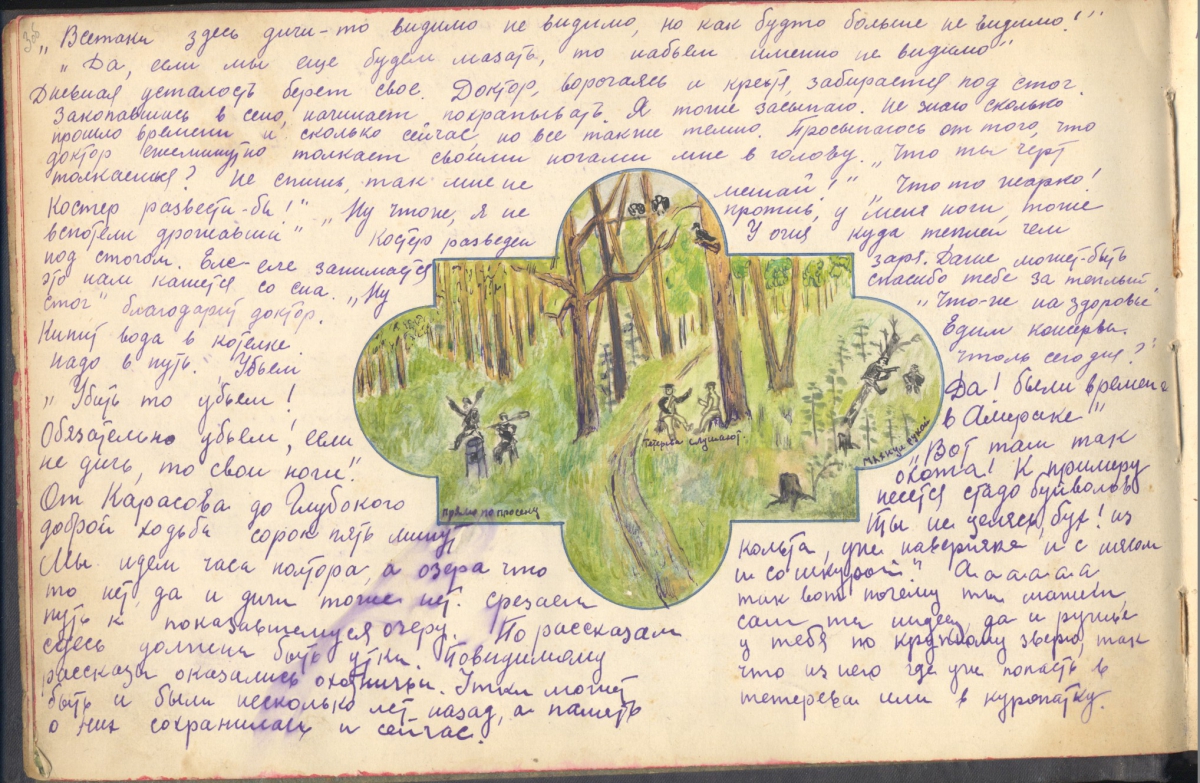 35
„Всетаки здесь дичи-то видимо не видимо, но как будто больше не видимо!"
„Да, если мы еще будем мазать, то набьем именно не видимо"
Дневная усталость берет свое. Доктор, ворочаясь и кряхтя, забирается под стог.
Закопавшись в сено, начинает похрапывать. Я тоже засыпаю. Не знаю сколько
прошло времени и сколько сейчас, но все также темно. Просыпаюсь от того, что
доктор ежеминутно толкает своими ногами мне в голову. „Что ты черт
толкаешься? Не спишь, так мне не мешай!" „Что то жарко!
Костер развести-бы!" „Ну что-же, я не против, у меня ноги тоже
вспотели дрожавши" Костер разведен У огня куда теплей чем
под стогом. Еле еле занимается заря. Даже может-быть
это нам кажется со сна. „Ну спасибо тебе за теплый
стог" благодарит доктор. „Что-ж на здоровье.
Кипит вода в котелке. Едим консервы.
Надо в путь. „Убьем что-ль сегодня?"
„Убить то убьем!
Обязательно убьем, если
не дичь, то свои ноги!"
От Карасова до Глубокого
доброй ходьбы сорок пять минут
Мы идем часа полтора, а озера что
то нет, да и дичи тоже нет. Срезаем
путь к показавшемуся озеру. По рассказам
здесь должны быть утки. Повидимому
рассказы оказались охотничьи. Утки может
быть и были несколько лет назад, а память
о них сохранилась и сейчас.
Да! были времена
в Америке!"
„Вот там так
охота! К примеру
несется стадо буйволов
Ты не целясь, бух! из
кольта, уже наверняка и с мясом
и со шкурой." А а а а а а
так вот почему ты мажешь,
сам ты индеец, да и ружье
у тебя по крупному зверю, так
что из него где уже попасть в
тетерева или в куропатку.
Тетерева слушают.
Прямо по просеку